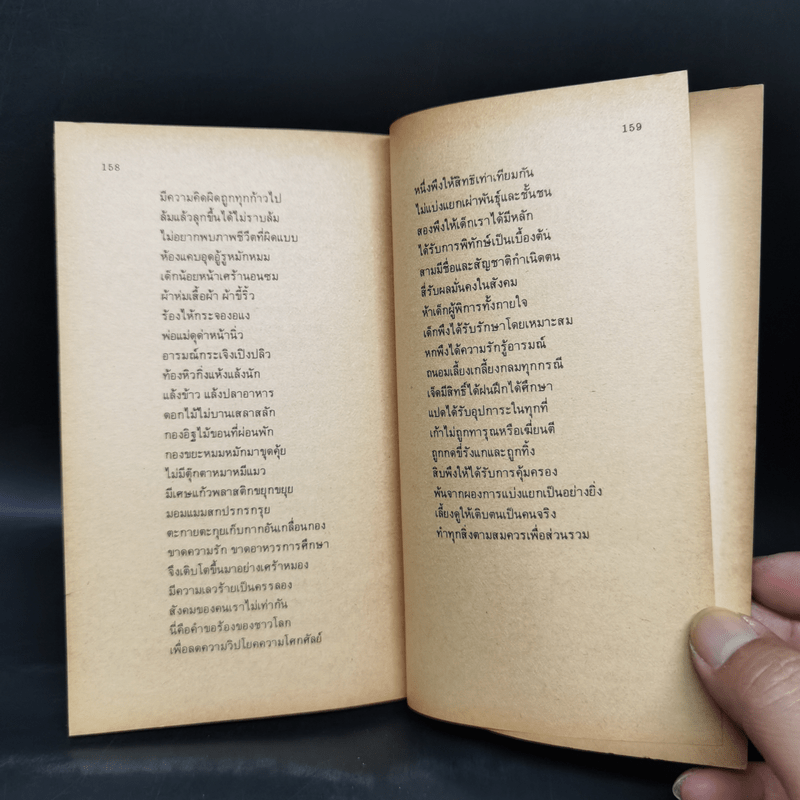 158
มีความคิดผิดถูกทุกก้าวไป
ล้มแล้วลุกขึ้นได้ไม่ราบล้ม
ไม่อยากพบภาพชีวิตที่ผิดแบบ
ห้องแคบอุดอู้รูหมักหมม
เด็กน้อยหน้าเศร้านอนซม
ผ้าห่มเสื้อผ้า ผ้าขี้ริ้ว
ร้องไห้กระจองอแง
พ่อแม่ดุด่าหน้านิ่ว
อารมณ์กระเจิงเปิงปลิว
ท้องหิวกิ่งแห้งแล้งนัก
แล้งข้าว แล้งปลาอาหาร
ดอกไม้ไม่บานเสลาสลัก
กองอิฐไม้ขอนที่ผ่อนพัก
กองขยะหมมหมักมาขุดคุ้ย
ไม่มีตุ๊กตาหมาหมีแมว
มีเศษแก้วพลาสติกขยุกขยุย
มอมแมมสกปรกกรุย
ตะกายตะกุยเก็บกากอันเกลื่อนกอง
ขาดความรัก ขาดอาหารการศึกษา
จึงเติบโตขึ้นมาอย่างเศร้าหมอง
มีความเลวร้ายเป็นครรลอง
สังคมของคนเราไม่เท่ากัน
นี่คือคำขอร้องของชาวโลก
เพื่อลดความวิปโยคความโศกศัลย์
159
หนึ่งพึงให้สิทธิเท่าเทียมกัน
ไม่แบ่งแยกเผ่าพันธุ์และชั้นชน
สองพึงให้เด็กเราได้มีหลัก
ได้รับการพิทักษ์เป็นเบื้องต้น
สามมีชื่อและสัญชาติกำเนิดตน
สี่รับผลมั่นคงในสังคม
ห้าเด็กผู้พิการทั้งกายใจ
เด็กพึงได้รับรักษาโดยเหมาะสม
หกพึงได้ความรักรู้อารมณ์
ถนอมเลี้ยงเกลี้ยงกลมทุกกรณี
เจ็ดมีสิทธิ์ได้ฝนฝึกได้ศึกษา
แปดได้รับอุปการะในทุกที่
เก้าไม่ถูกทารุณหรือเฆี่ยนตี
ถูกกดขี่รังแกและถูกทิ้ง
สิบพึงให้ได้รับการคุ้มครอง
พ้นจากผองการแบ่งแยกเป็นอย่างยิ่ง
เลี้ยงดูให้เติบตนเป็นคนจริง
ทำทุกสิ่งตามสมควรเพื่อส่วนรวม